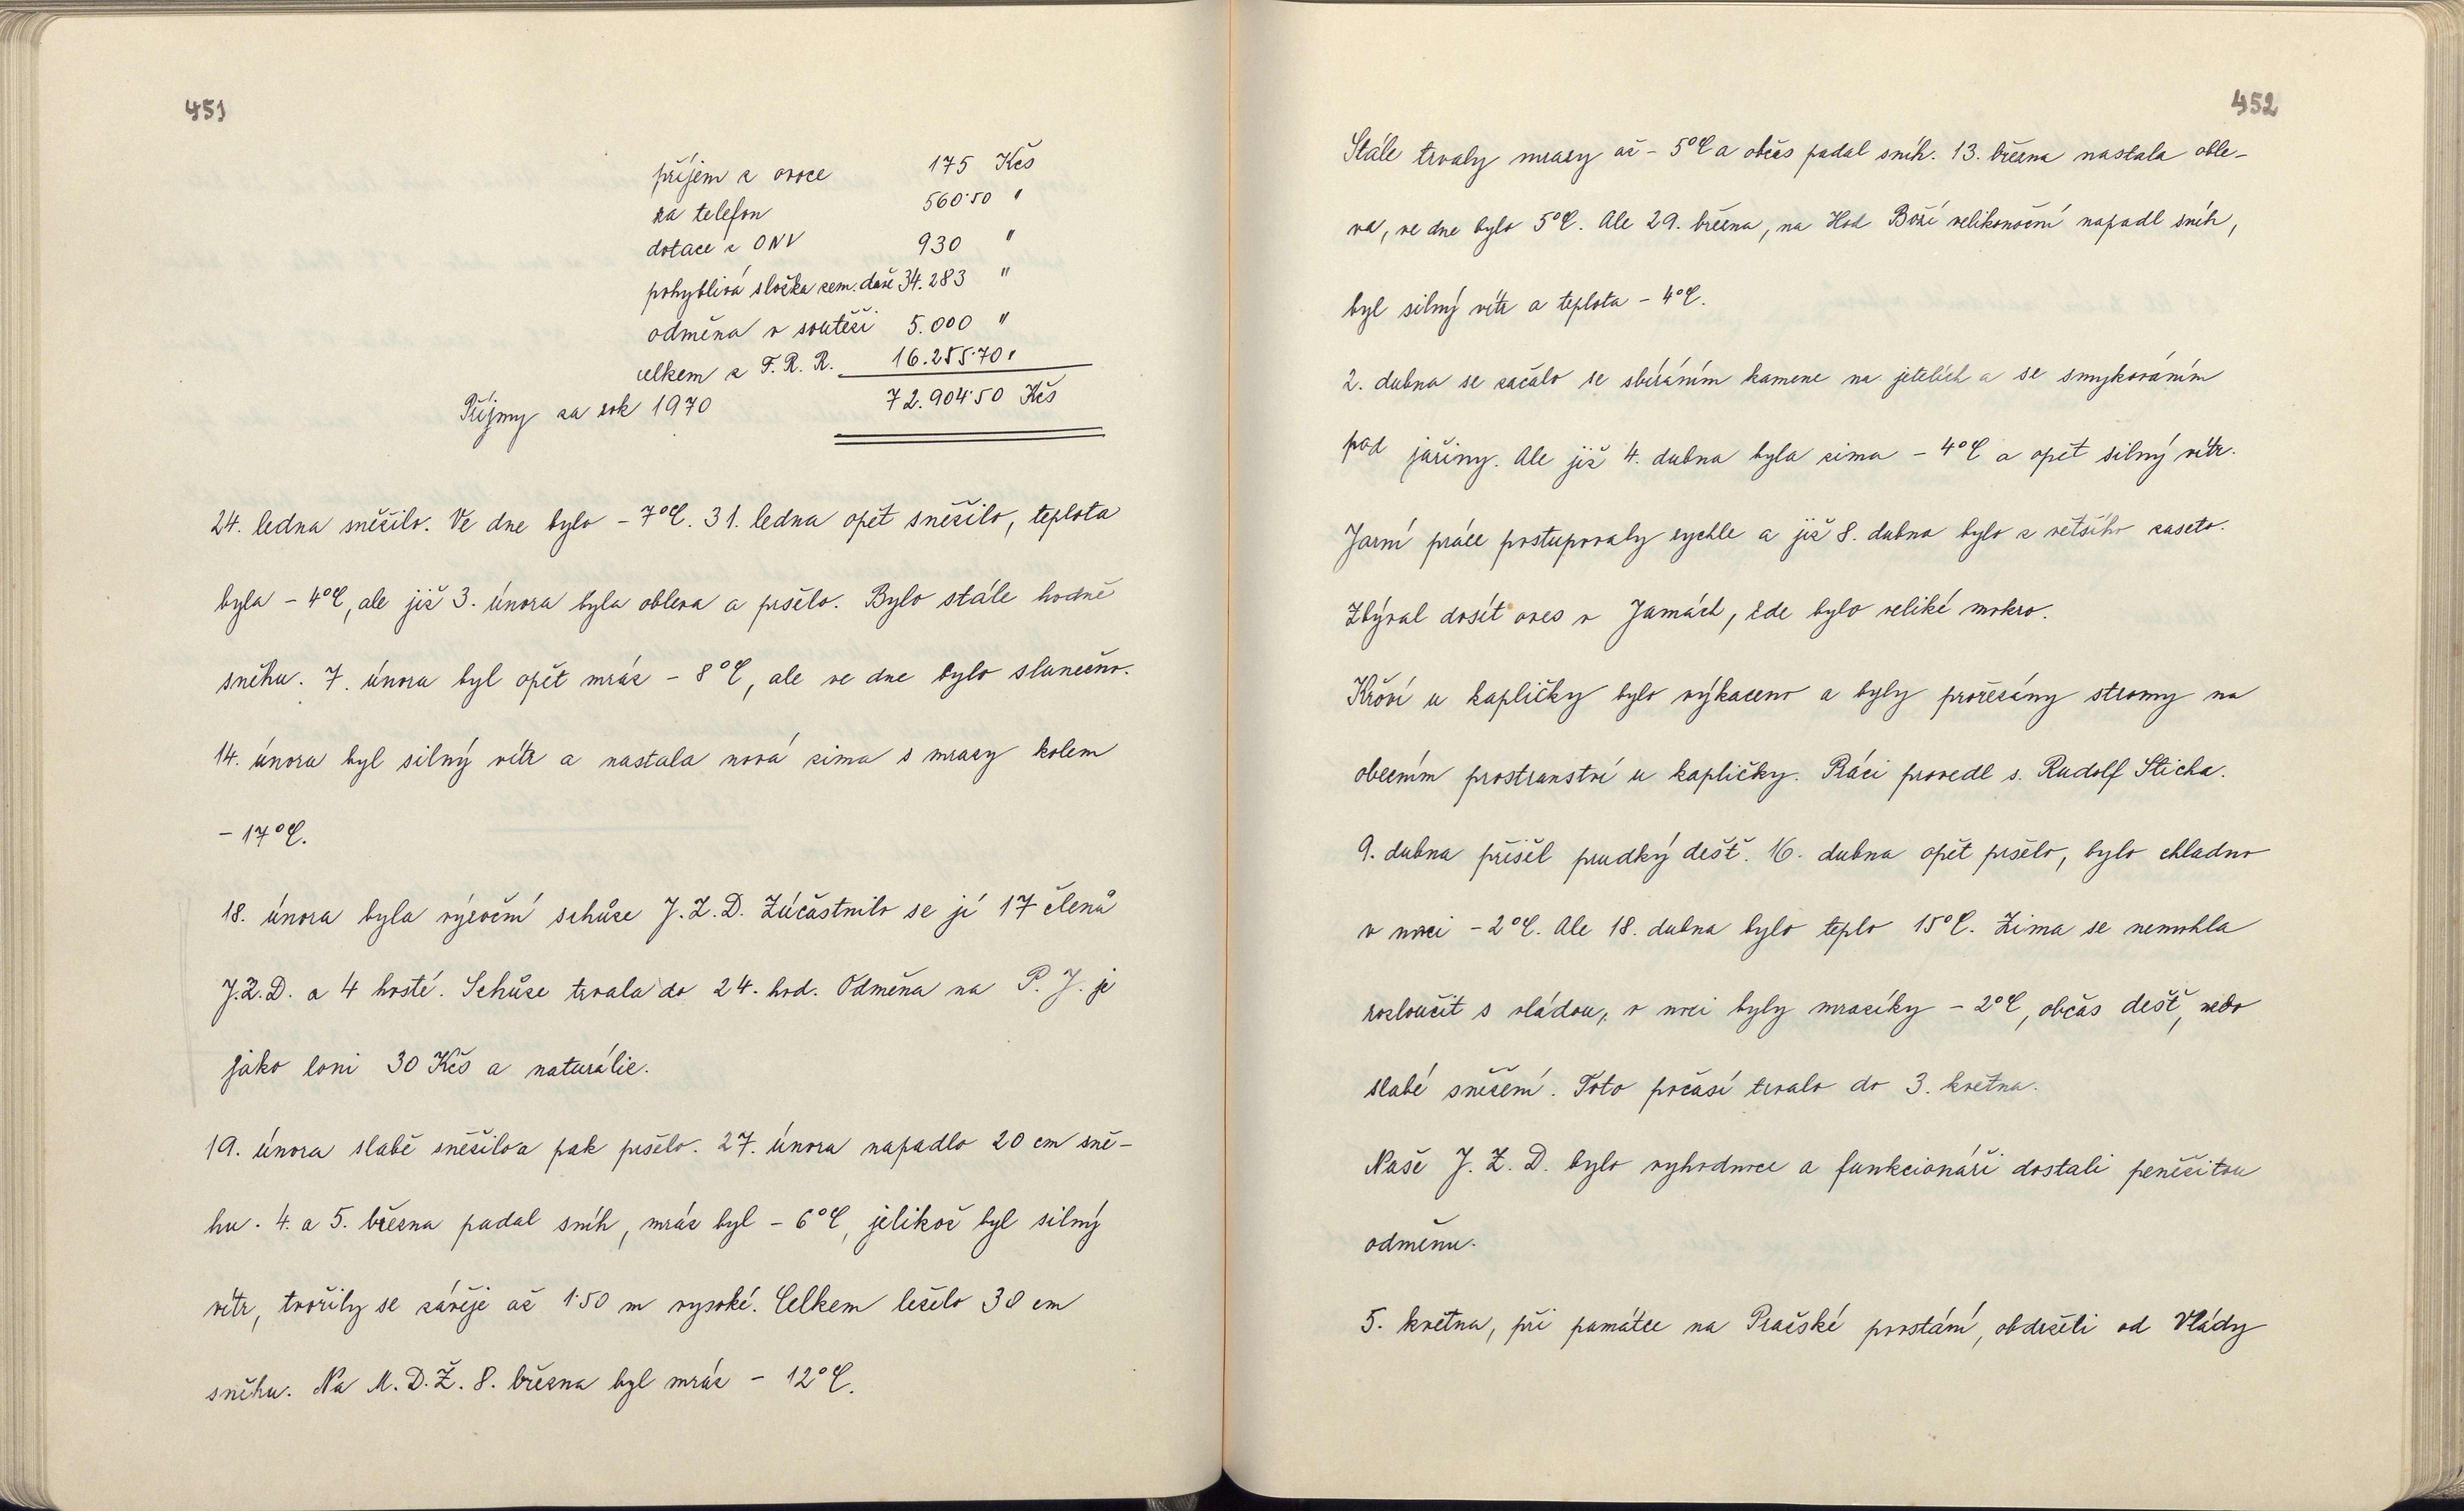 451
příjem z ovoce 175 Kčs
za telefon 560·50 "
dotace z ONV 930 "
pohyblivá složka zem. daně 34.283 "
odměna v soutěži 5.000 "
celkem z F. R. R. 16.255·70 "
Příjmy za rok 1970 72.904·50 Kčs
24. ledna sněžilo. Ve dne bylo - 7°C. 31. ledna opět sněžilo, teplota
byla - 4°C, ale již 3. února byla obleva a pršelo. Bylo stále hodně
sněhu. 7. února byl opět mráz - 8°C, ale ve dne bylo slunečno.
14. února byl silný vítr a nastala nová zima s mrazy kolem
- 17°C.
18. února byla výroční schůze J.Z.D. Zúčastnilo se jí 17 členů
J.Z.D. a 4 hosté. Schůze trvala do 24. hod. Odměna na P. J. je
jako loni 30 Kčs a naturálie.
19. února slabě sněžilo a pak pršelo. 27. února napadlo 20 cm sně-
hu. 4. a 5. března padal sníh, mráz byl - 6°C, jelikož byl silný
vítr, tvořily se závěje až 1·50 m vysoké. Celkem leželo 30 cm
sněhu. Na M.D.Ž. 8. března byl mráz - 12°C.
452
Stále trvaly mrazy až - 5°C a občas padal sníh. 13. března nastala oble-
va, ve dne bylo 5°C. Ale 29. března, na Hod Boží velikonoční napadl sníh,
byl silný vítr a teplota - 4°C.
2. dubna se začalo se sbíráním kamene na jetelích a se smykováním
pod jařiny. Ale již 4. dubna byla zima - 4°C a opět silný vítr.
Jarní práce postupovaly rychle a již 8. dubna bylo z většího zaseto.
Zbýval dosít oves v Jamách, kde bylo veliké mokro.
Křoví u kapličky bylo výkaceno a byly prořezány stromy na
obecním prostranství u kapličky. Práci provedl s. Rudolf Sticha.
9. dubna přišel prudký dešť. 16. dubna opět pršelo, bylo chladno
v noci - 2°C. Ale 18. dubna bylo teplo 15°C. Zima se nemohla
rozloučit s vládou, v noci byly mrazíky - 2°C, občas dešť, nebo
slabé sněžení. Toto počasí trvalo do 3. května.
Naše J. Z. D. bylo vyhodnoce a funkcionáři dostali peněžitou
odměnu.
5. května, při památce na Pražské povstání, obdrželi od Vlády